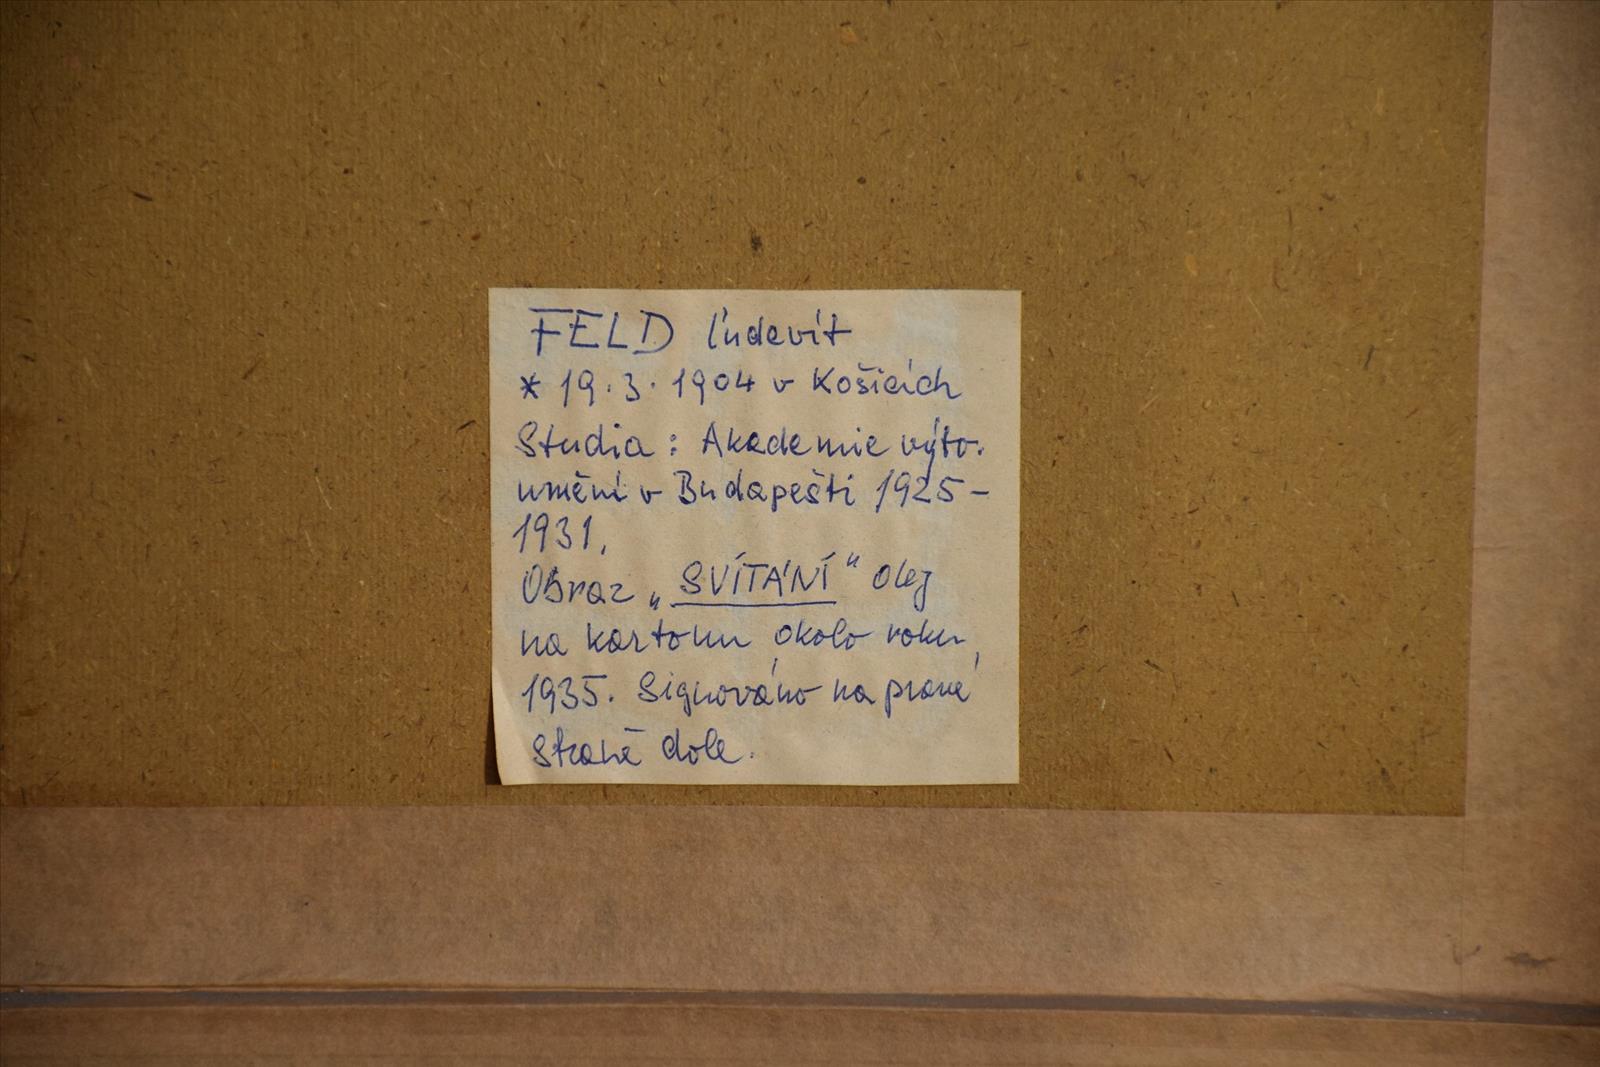 FELD Ľudevít
* 19.3.1904 v Košicích
Studia: Akademie výtv.
umění v Budapešti 1925-
1931.
Obraz „SVÍTÁNÍ" olej
na kartonu, okolo roku
1935. Signováno na pravé
straně dole.